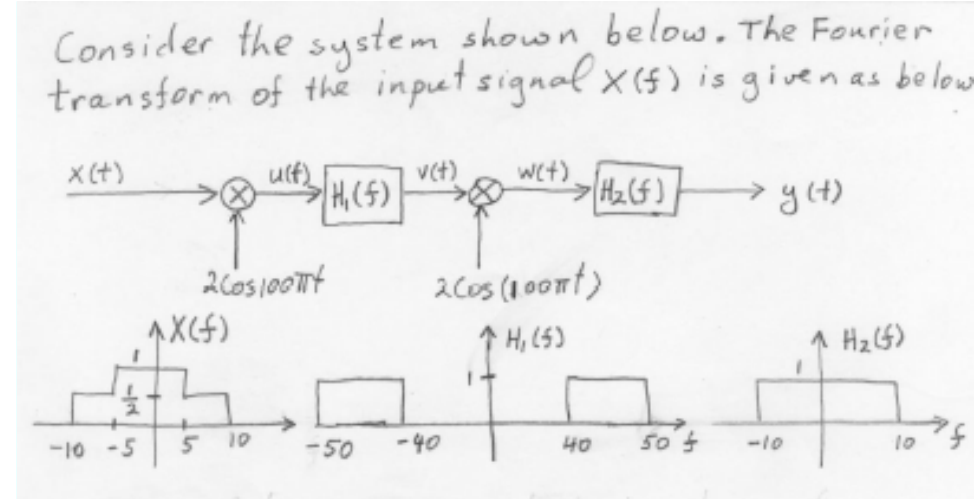 Consider the system shown below. The Fourier
transform of the input signal X(f) is given as below
x(t) u(t) H₁(f) v(t) w(t) H₂(f) y(t)
2cos100πt 2cos(100πt)
X(f) H₁(f) H₂(f)
1 1 1
1/2
-10 -5 5 10 -50 -40 40 50 f -10 10 f